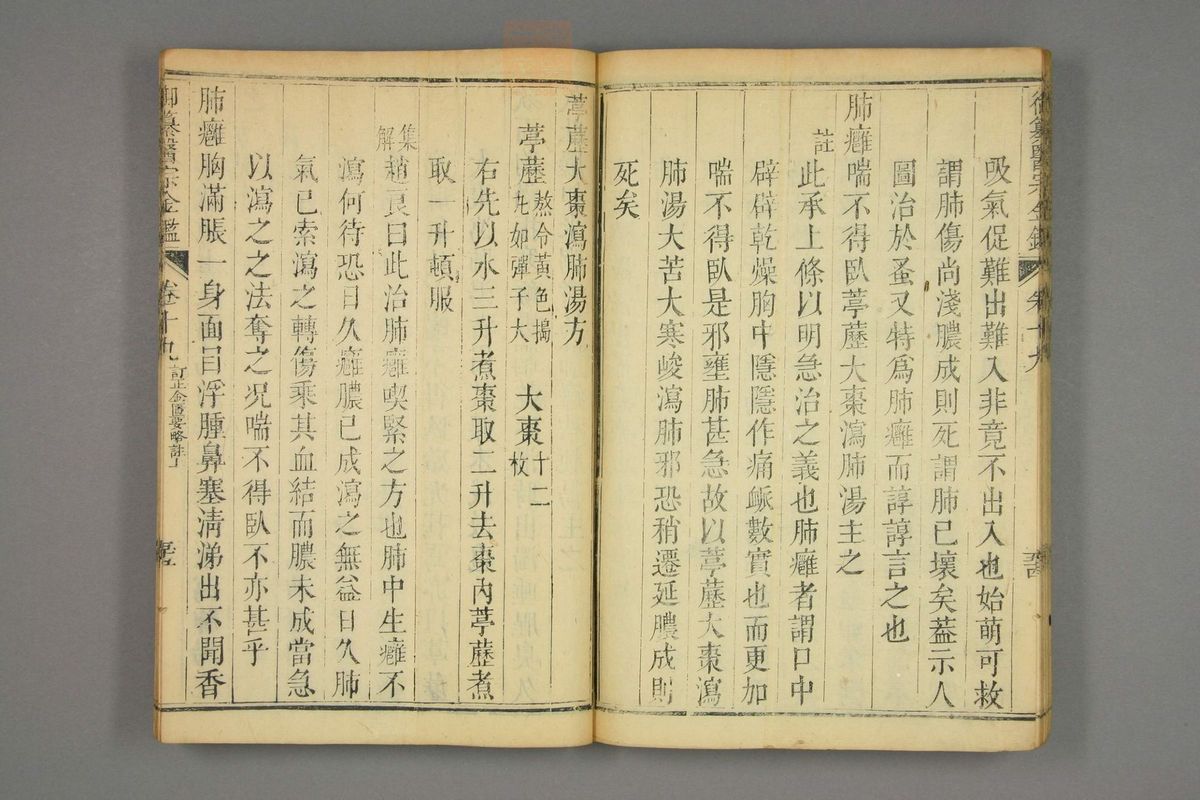 御纂醫宗金鑑 卷十九
吸氣促難出難入非竟不出入也始萌可救
謂肺傷尚淺膿成則死謂肺已壞矣蓋示人
圖治於蚤又特爲肺癰而諄諄言之也
肺癰喘不得臥葶藶大棗瀉肺湯主之
註此承上條以明急治之義也肺癰者謂口中
辟辟乾燥胸中隱隱作痛䘑數實也而更加
喘不得臥是邪壅肺甚急故以葶藶大棗瀉
肺湯大苦大寒峻瀉肺邪恐稍遷延膿成則
死矣
葶藶大棗瀉肺湯方
葶藶熬令黃色搗丸如彈子大 大棗十二枚
右先以水三升煮棗取二升去棗內葶藶煮
取一升頓服
集解趙良曰此治肺癰喫緊之方也肺中生癰不
瀉何待恐日久癰膿已成瀉之無益日久肺
氣已索瀉之轉傷乘其血結而膿未成當急
以瀉之之法奪之況喘不得臥不亦甚乎
肺癰胸滿脹一身面目浮腫鼻塞淸涕出不聞香
御纂醫宗金鑑 卷十九 訂正金匱要略註